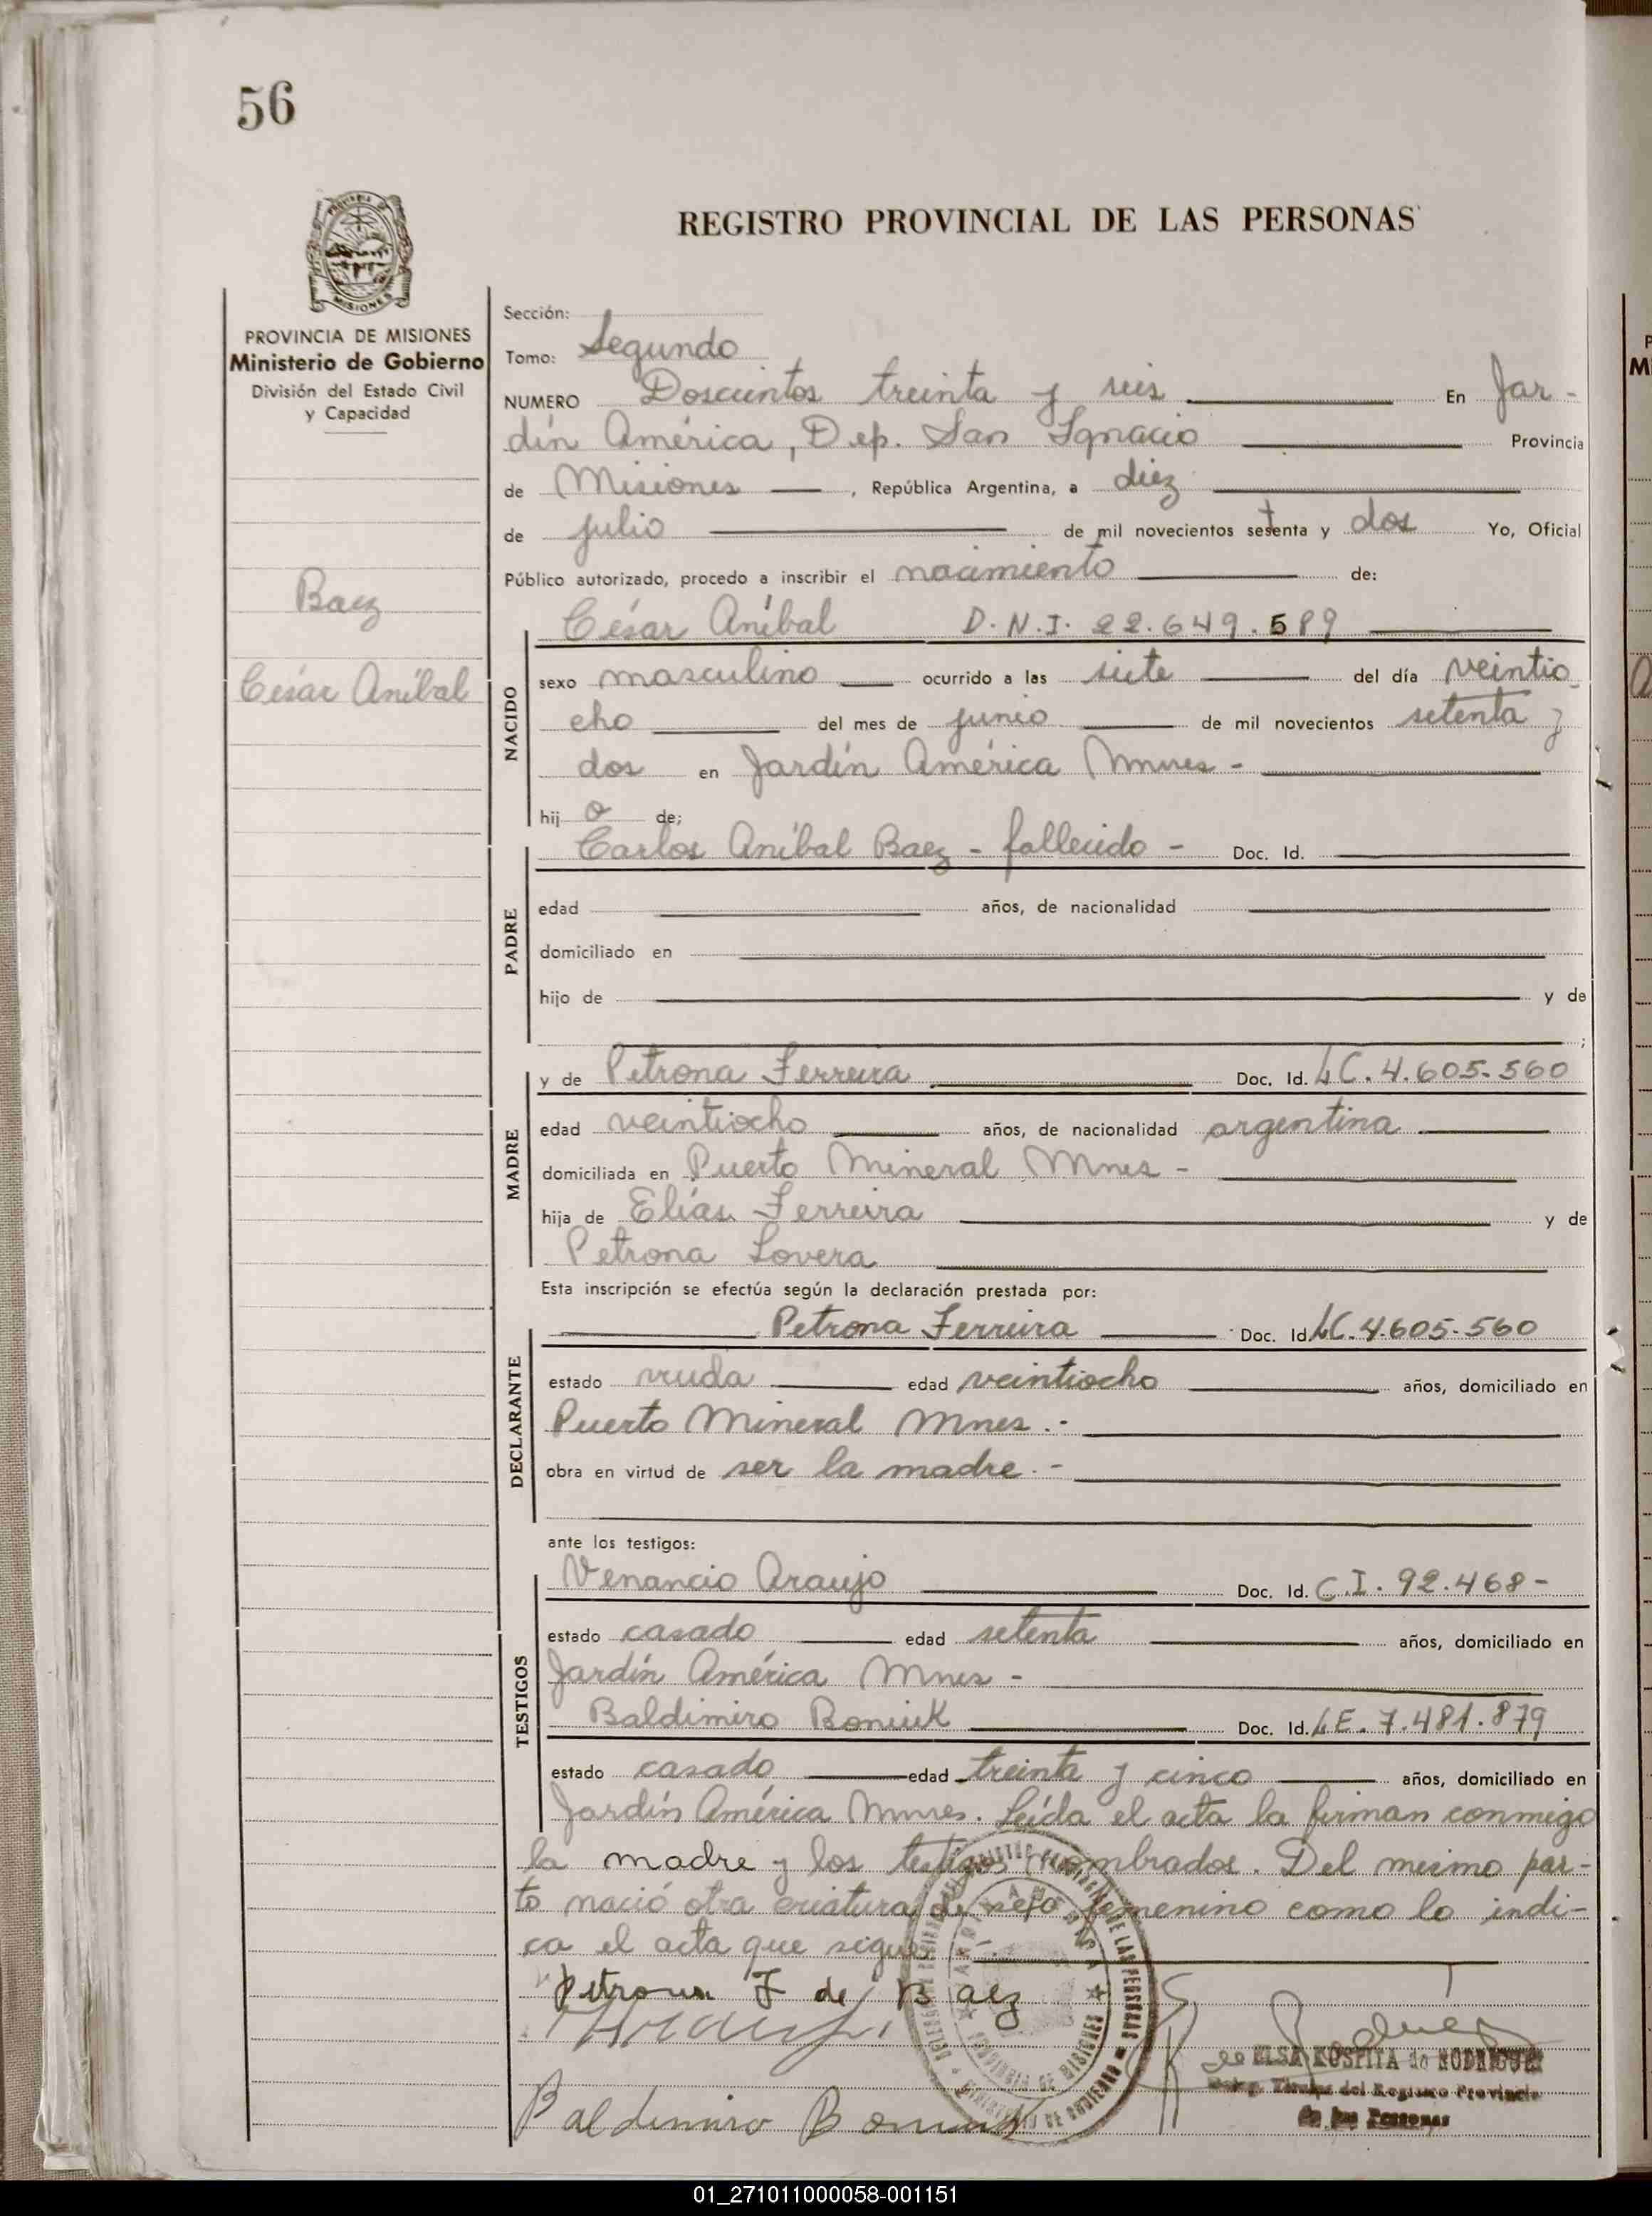 56
REGISTRO PROVINCIAL DE LAS PERSONAS
PROVINCIA DE MISIONES
Ministerio de Gobierno
División del Estado Civil
y Capacidad
Baez
César Aníbal
Sección:
Tomo: Segundo
NUMERO Doscientos treinta y seis En Jar-
dín América, Dep. San Ignacio Provincia
de Misiones, República Argentina, a diez
de julio de mil novecientos setenta y dos Yo, Oficial
Público autorizado, procedo a inscribir el nacimiento de:
César Aníbal D.N.I. 22.649.589
NACIDO
sexo masculino ocurrido a las siete del día veintio
cho del mes de junio de mil novecientos setenta y
dos en Jardín América Mnes -
hijo de;
PADRE
Carlos Aníbal Baez - fallecido - Doc. Id.
edad años, de nacionalidad
domiciliado en
hijo de y de
;
MADRE
y de Petrona Ferreira Doc. Id. LC. 4.605.560
edad veintiocho años, de nacionalidad argentina
domiciliada en Puerto Mineral Mnes -
hija de Elías Ferreira y de
Petrona Lovera
Esta inscripción se efectúa según la declaración prestada por:
DECLARANTE
Petrona Ferreira Doc. Id. LC. 4.605.560
estado viuda edad veintiocho años, domiciliado en
Puerto Mineral Mnes. -
obra en virtud de ser la madre. -
ante los testigos:
TESTIGOS
Venancio Araujo Doc. Id. C.I. 92.468-
estado casado edad setenta años, domiciliado en
Jardín América Mnes -
Baldimiro Boniuk Doc. Id. LE. 7.481.879
estado casado edad treinta y cinco años, domiciliado en
Jardín América Mnes. Leída el acta la firman conmigo
la madre y los testigos nombrados. Del mismo par-
to nació otra criatura de sexo femenino como lo indi-
ca el acta que sigue
Petrona F de Baez
Baldimiro Boniuk
ELSA ROSPITA de RODRIGUEZ
del Registro Provincial
de las Personas
01_271011000058-001151